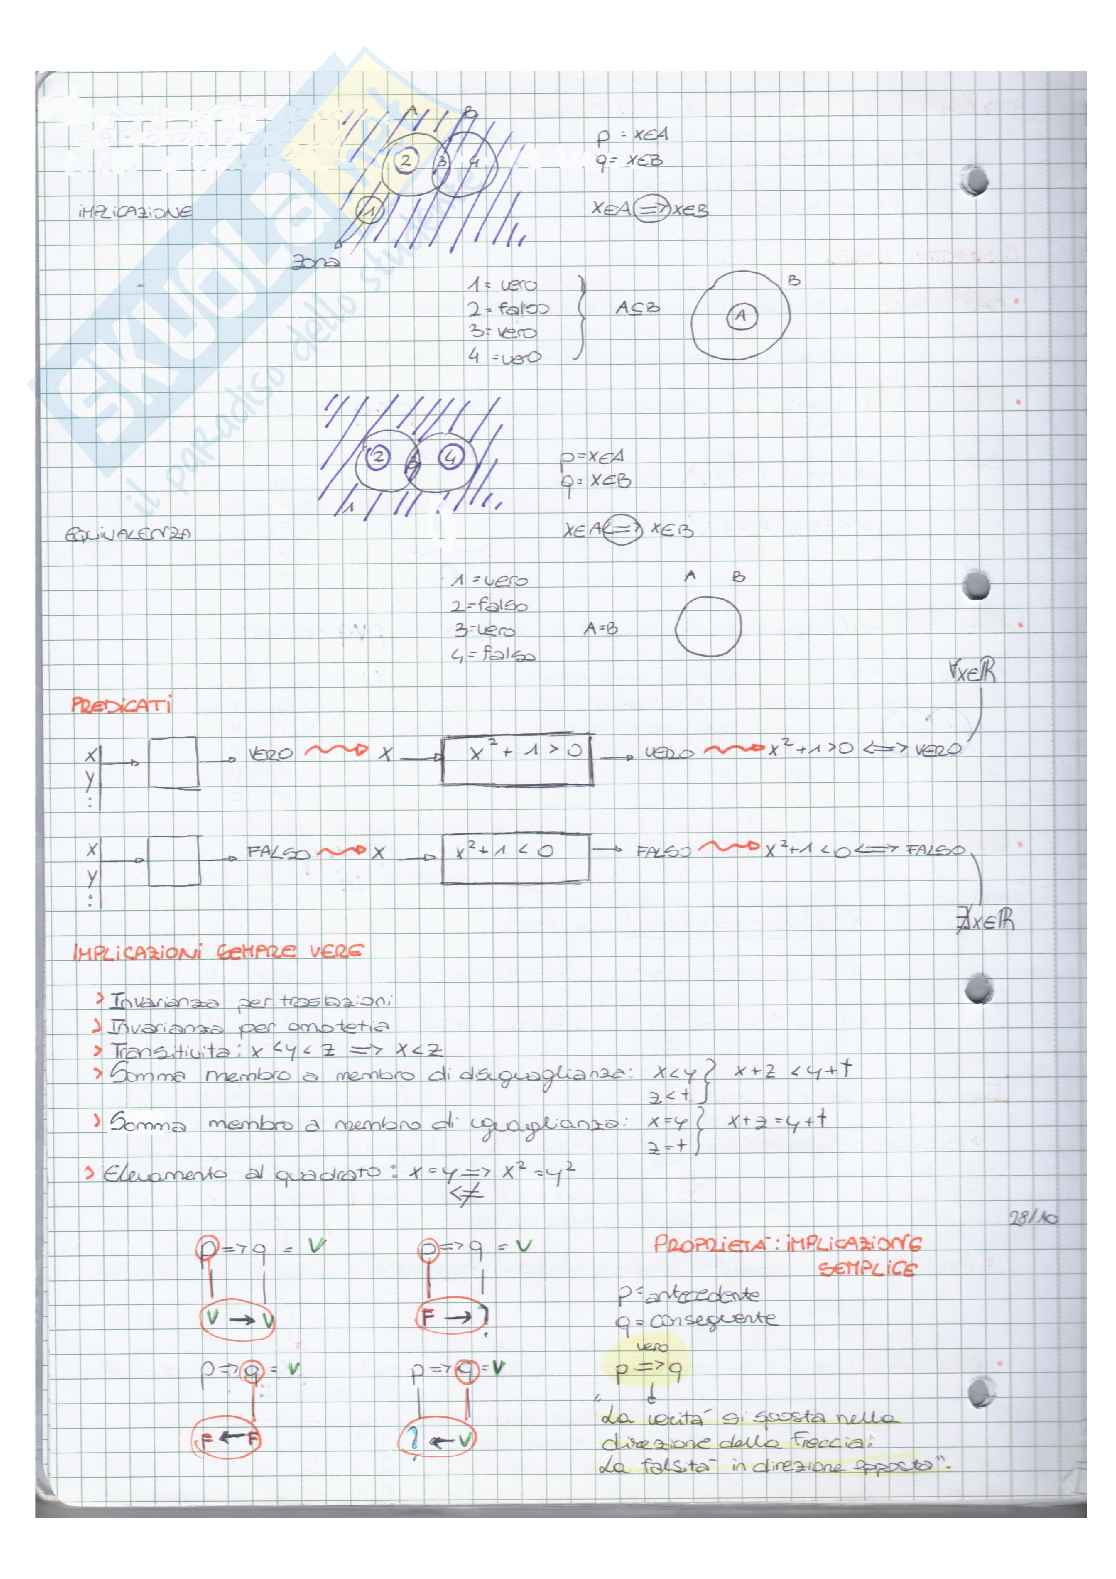 A B
p = x∈A
q = x∈B
2 3 4
1
IMPLICAZIONE
x∈A => x∈B
zona
1 = vero
2 = falso
3 = vero
4 = vero
A⊆B
B
A
2 3 4
1
p = x∈A
q = x∈B
EQUIVALENZA
x∈A <=> x∈B
1 = vero
2 = falso
3 = vero
4 = falso
A=B
A B
∀x∈ℝ
PREDICATI
x → VERO x → x²+1>0 → VERO x²+1>0 <=> VERO
y
:
x → FALSO x → x²+1<0 → FALSO x²+1<0 <=> FALSO
y
:
∄x∈ℝ
IMPLICAZIONI SEMPRE VERE
> Invarianza per traslazioni
> Invarianza per omotetia
> Transitivita: x<y<z => x<z
> Somma membro a membro di disuguaglianze: x<y } x+z<y+t
z<t
> Somma membro a membro di uguaglianza: x=y } x+z=y+t
z=t
> Elevamento al quadrato: x=y => x²=y²
<≠
28/10
p=>q = V p=>q = V
V → V F → ?
p=>q = V p=>q = V
F ← F ? ← V
PROPRIETÁ: IMPLICAZIONE
SEMPLICE
p=antecedente
q=conseguente
vero
p => q
"La veritá si sposta nella
direzione della freccia;
La falsitá in direzione opposta".
SKUOLA.it
il paradiso dello studente